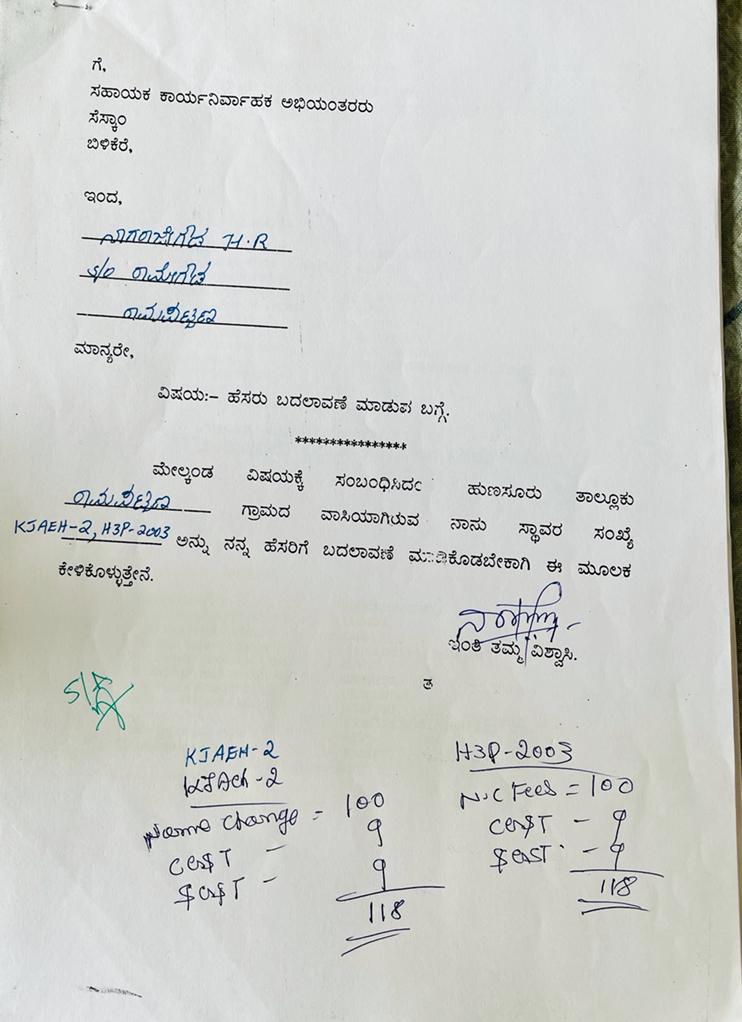 ಗೆ,
ಸಹಾಯಕ ಕಾರ್ಯನಿರ್ವಾಹಕ ಅಭಿಯಂತರರು
ಸೆಸ್ಕಾಂ
ಬಿಳಿಕೆರೆ,
ಇಂದ,
ನಾಗರಾಜೇಗೌಡ H.R
S/o ರಾಮೇಗೌಡ
ರಾಮಪಟ್ಟಣ
ಮಾನ್ಯರೇ,
ವಿಷಯ:– ಹೆಸರು ಬದಲಾವಣೆ ಮಾಡುವ ಬಗ್ಗೆ.
****************
ಮೇಲ್ಕಂಡ ವಿಷಯಕ್ಕೆ ಸಂಬಂಧಿಸಿದಂ ಹುಣಸೂರು ತಾಲ್ಲೂಕು
ರಾಮಪಟ್ಟಣ ಗ್ರಾಮದ ವಾಸಿಯಾಗಿರುವ ನಾನು ಸ್ಥಾವರ ಸಂಖ್ಯೆ
KJAEH-2, H3P-2003 ಅನ್ನು ನನ್ನ ಹೆಸರಿಗೆ ಬದಲಾವಣೆ ಮಾಡಿಕೊಡಬೇಕಾಗಿ ಈ ಮೂಲಕ
ಕೇಳಿಕೊಳ್ಳುತ್ತೇನೆ.
ಇಂತಿ ತಮ್ಮ ವಿಶ್ವಾಸಿ.
ತ
KJAEH-2
Name change = 100
CGST - 9
SGST - 9
118
H3P-2003
N.C Fees = 100
CGST - 9
SGST - 9
118